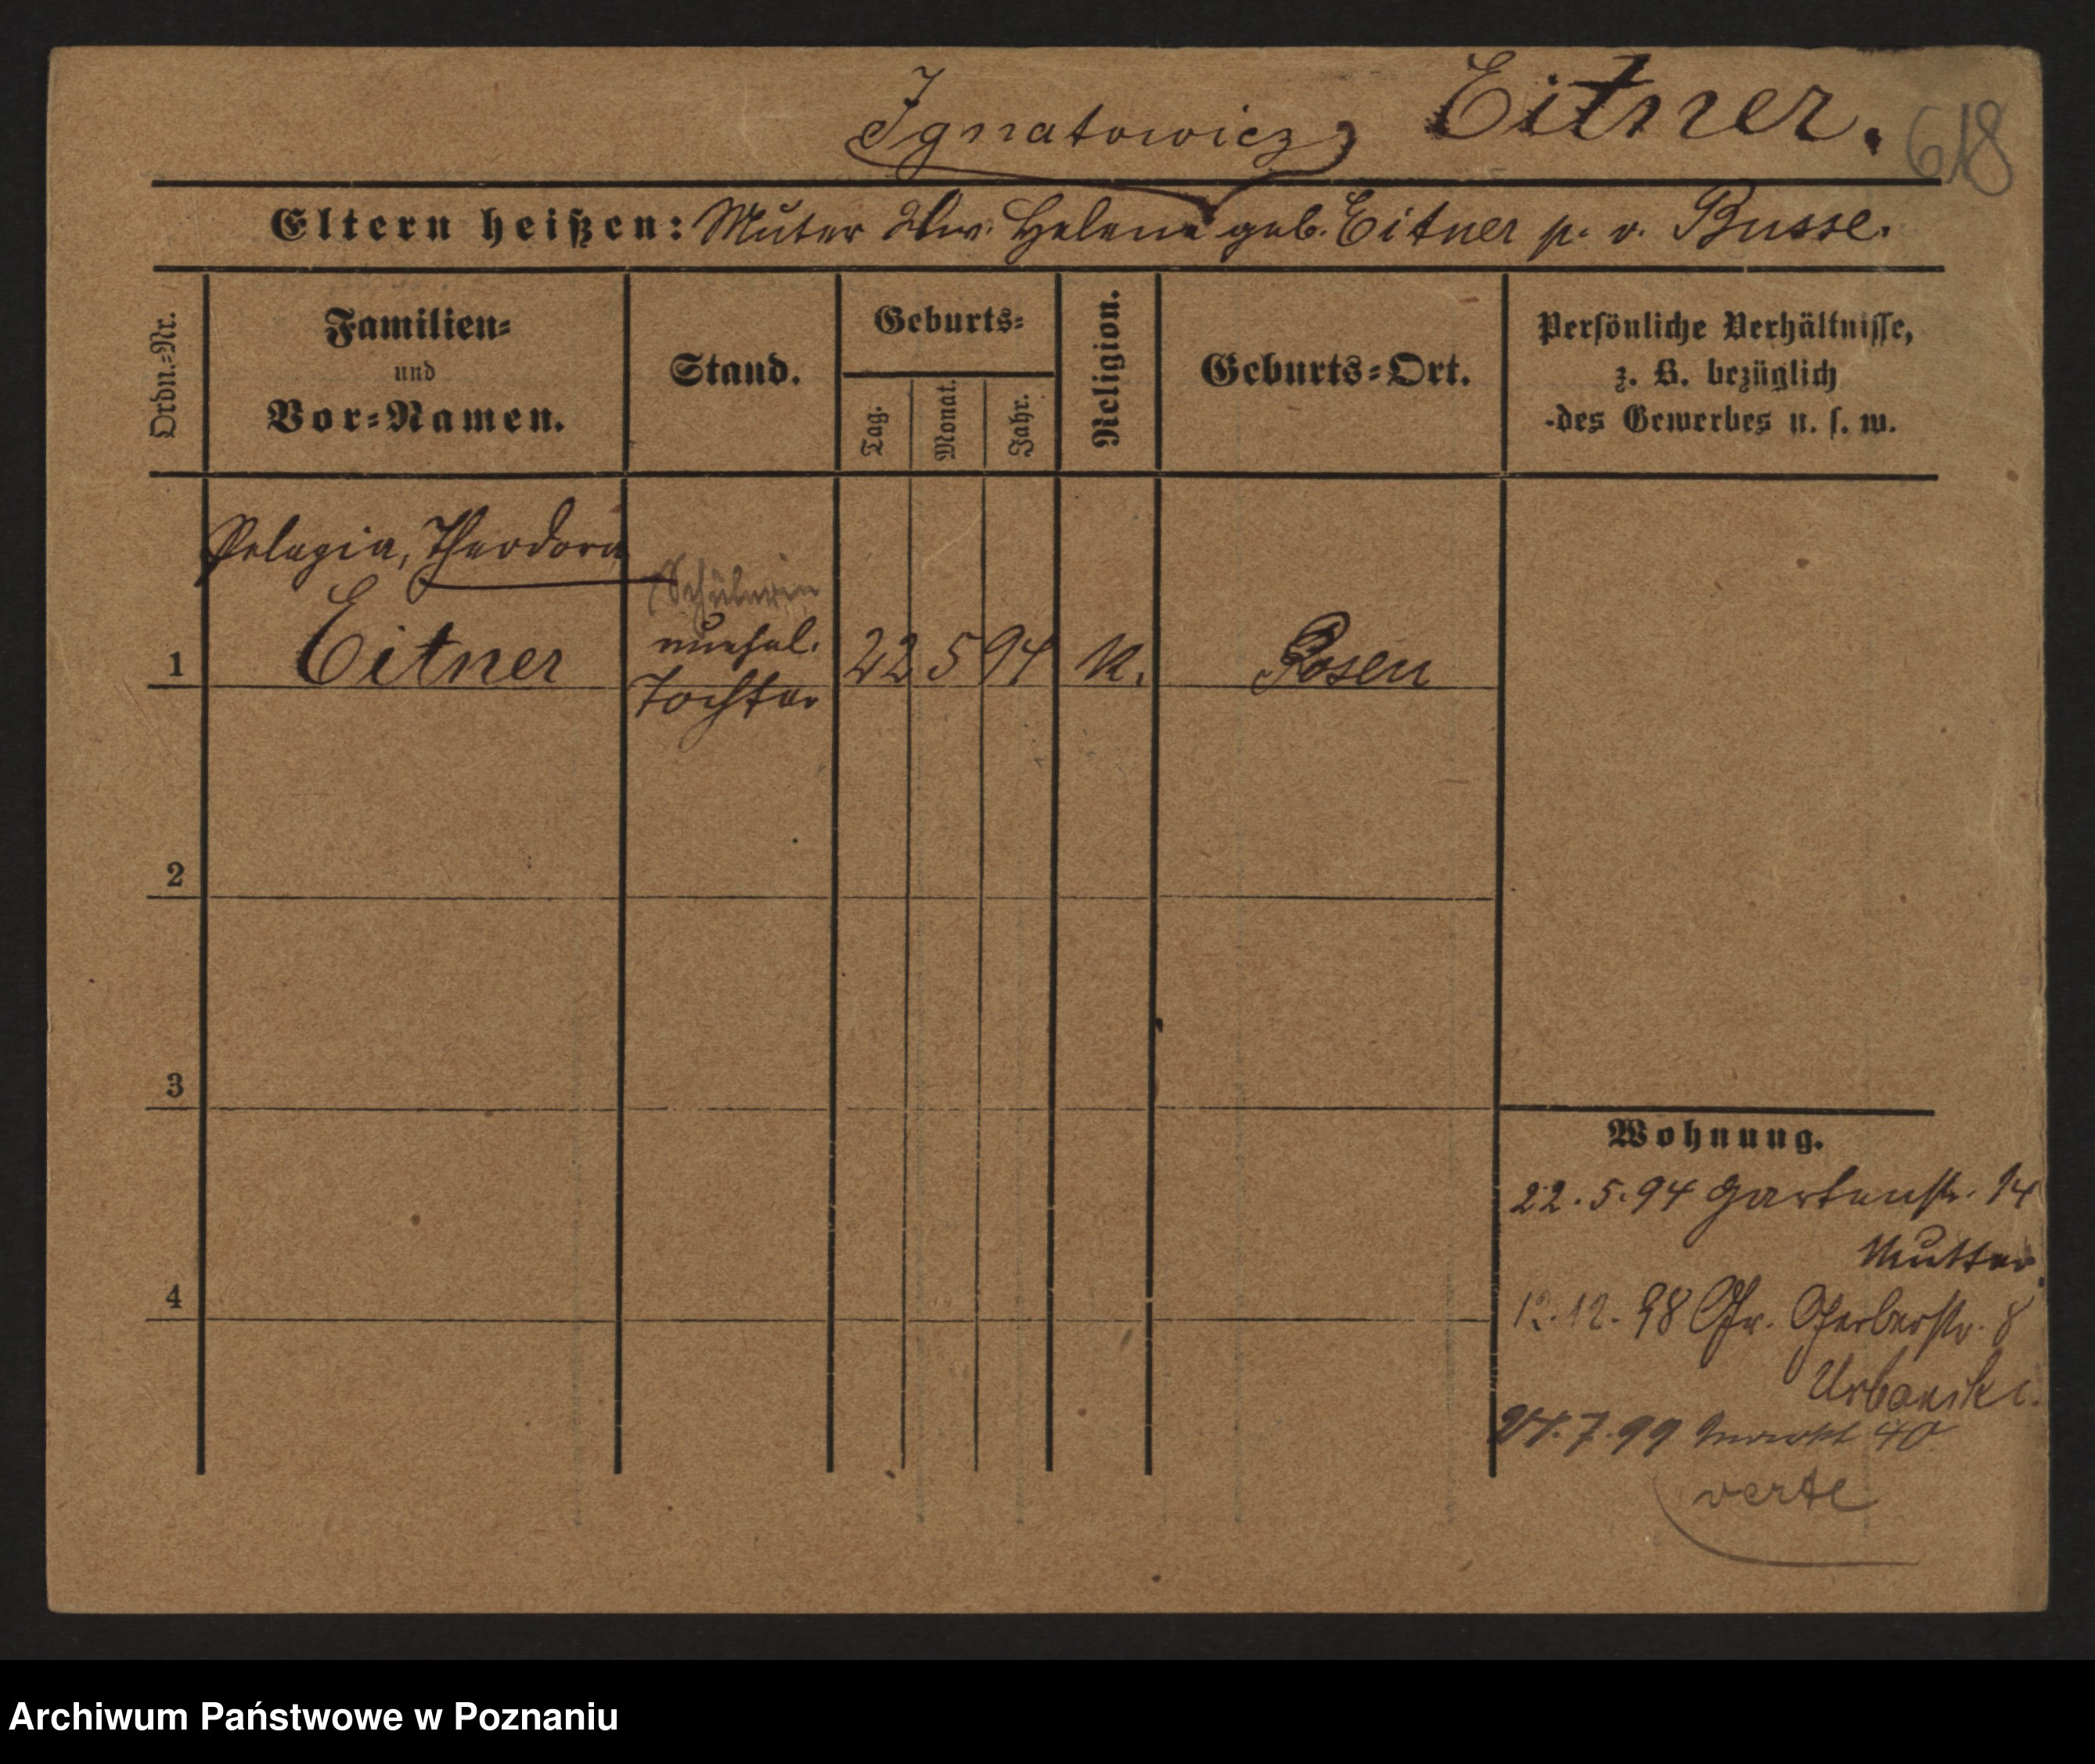 Ignatowicz Eitner. 618
Eltern heißen: Mutter Ww. Helene geb. Eitner p. v. Busse.
Ordn.=Nr.
Familien=
und
Vor=Namen.
Stand.
Geburts=
Tag.
Monat.
Jahr.
Religion.
Geburts=Ort.
Persönliche Verhältnisse,
z. B. bezüglich
des Gewerbes u. s. w.
Pelagia, Theodora
Schülerin
1 Eitner unehel. 22 5 94 K. Posen
Tochter
2
3
4
Wohnung.
22.5.94 Gartenstr. 14
Mutter.
12.12.98 Gr. Gerberstr. 8
Urbanski.
24.7.99 Markt 40
verte
Archiwum Państwowe w Poznaniu